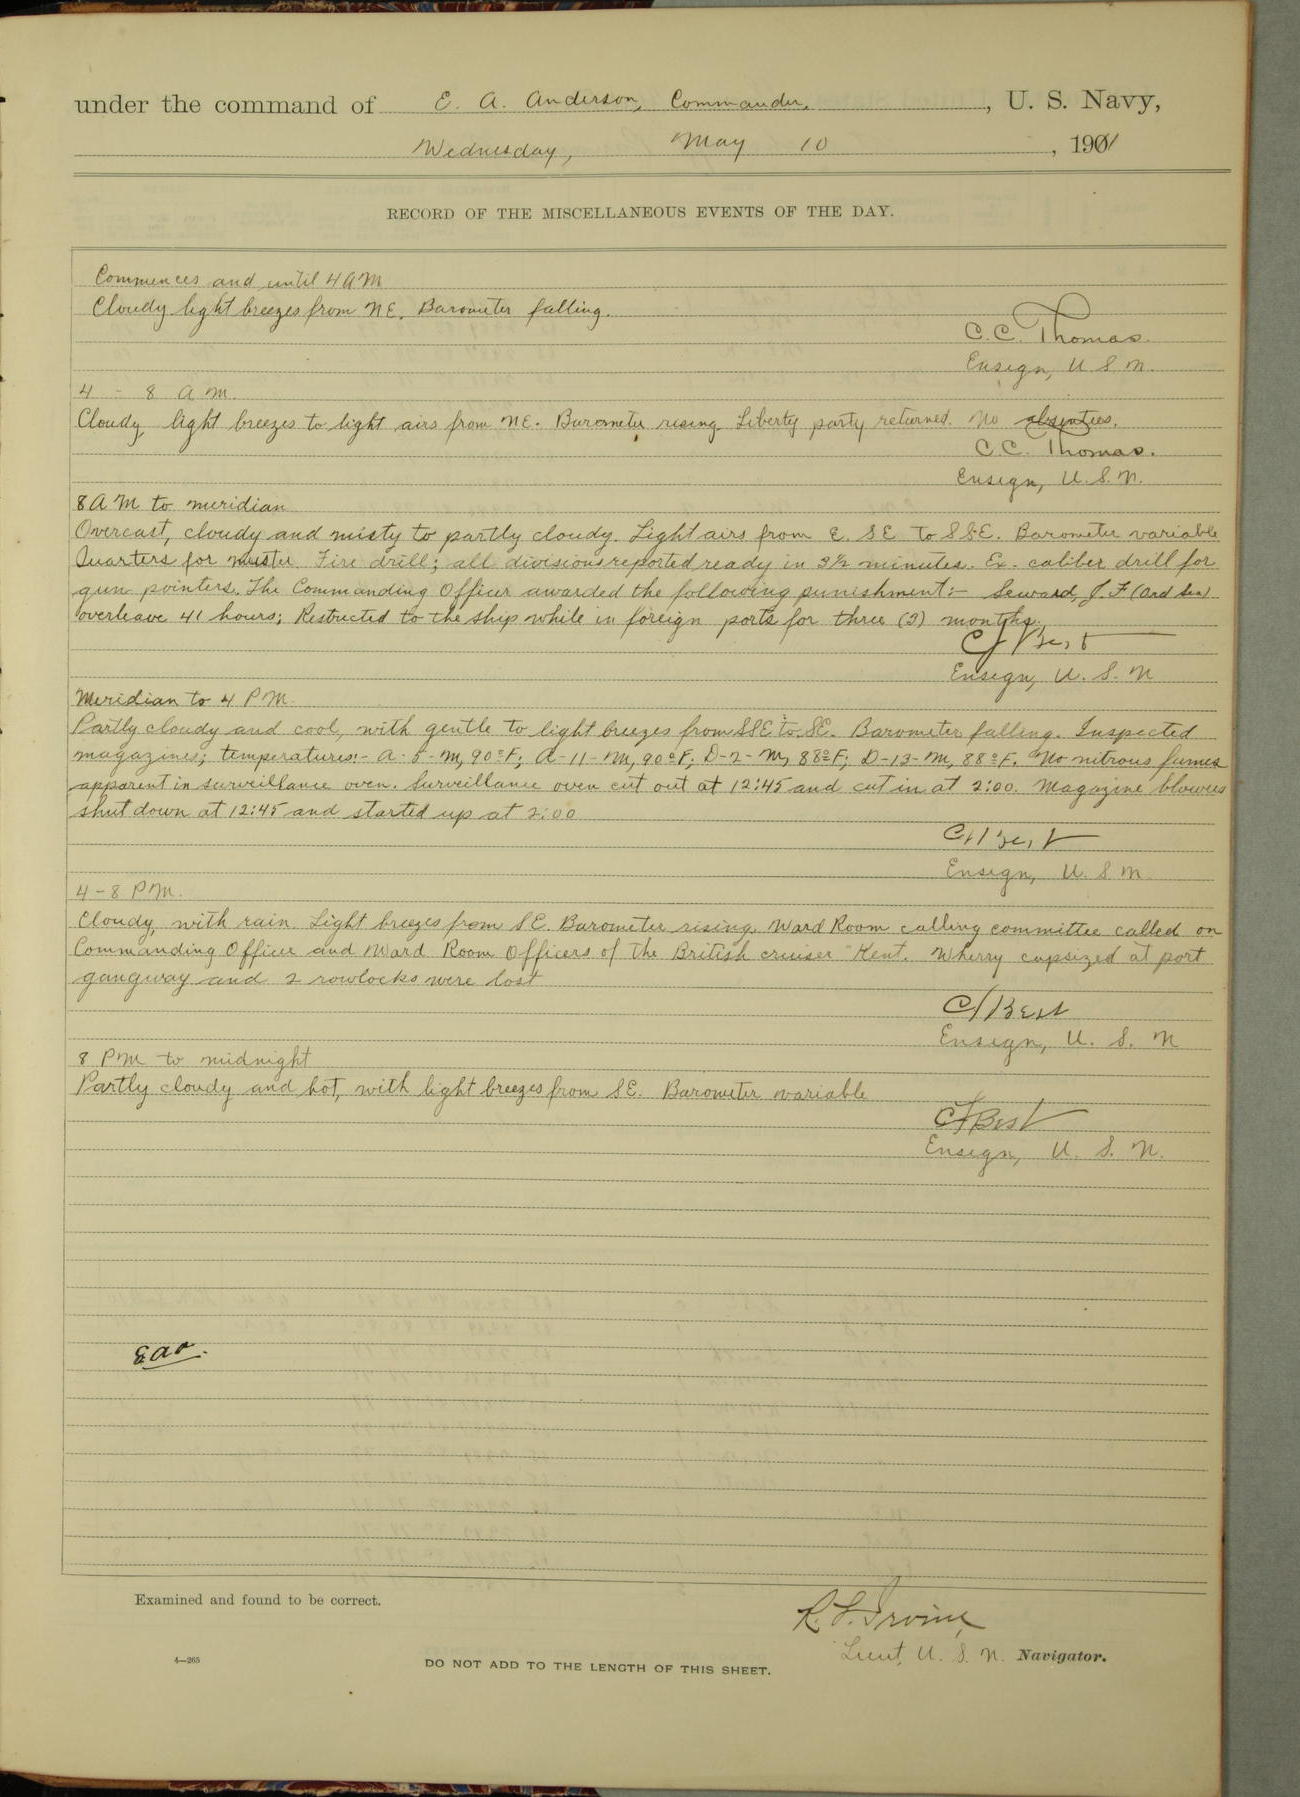 under the command of E. A. Anderson, Commander, , U. S. Navy,
Wednesday, May 10 , 1901
RECORD OF THE MISCELLANEOUS EVENTS OF THE DAY.
Commences and until 4 A M
Cloudy light breezes from NE. Barometer falling.
C. C. Thomas.
Ensign, U S N.
4 - 8 A M.
Cloudy, light breezes to light airs from NE. Barometer rising. Liberty party returned. No absentees.
C. C. Thomas.
Ensign, U. S. N.
8 A M to meridian
Overcast, cloudy and misty to partly cloudy. Light airs from E. SE to SSE. Barometer variable
Quarters for muster. Fire drill; all divisions reported ready in 3½ minutes. Ex. caliber drill for
gun pointers. The Commanding Officer awarded the following punishment:- Seward, J. F (Ord Sea)
overleave 41 hours; Restricted to the ship while in foreign ports for three (3) months.
C J Best
Ensign, U. S. N
Meridian to 4 P M.
Partly cloudy and cool, with gentle to light breezes from SSE to SE. Barometer falling. Inspected
magazines; temperatures:- A-5-M, 90°F; A-11-M, 90°F; D-2-M, 88°F; D-13-M, 88°F. No nitrous fumes
apparent in surveillance oven. Surveillance oven cut out at 12:45 and cut in at 2:00. Magazine blowers
shut down at 12:45 and started up at 2:00
C J Best
Ensign, U. S N.
4 - 8 P M.
Cloudy, with rain. Light breezes from SE. Barometer rising. Ward Room calling committee called on
Commanding Officer and Ward Room Officers of the British cruiser "Kent. Wherry capsized at port
gangway and 2 rowlocks were lost
C J Best
Ensign, U. S. N
8 P M to midnight
Partly cloudy and hot, with light breezes from SE. Barometer variable
C J Best
Ensign, U. S. N.
Examined and found to be correct.
R. L. Irvine,
Lieut, U. S. N. Navigator.
4—265
DO NOT ADD TO THE LENGTH OF THIS SHEET.